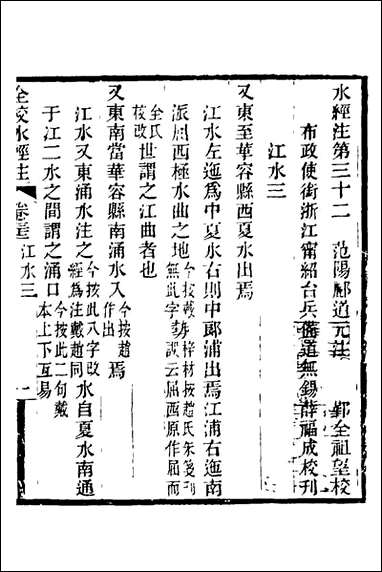 水經注第三十二　范陽酈道元注　鄞全祖望校
布政使銜浙江甯紹台兵備道無錫薛福成校刊
江水三
又東至華容縣西夏水出焉
江水左迤爲中夏水右則中郎浦出焉江浦右迤南
派屈西極水曲之地今按戴無此字勢梓材按趙氏朱箋刊誤云屈西原作屈而
全氏校改世謂之江曲者也
又東南當華容縣南涌水入今按趙作出焉
江水又東涌水注之今按此八字改經爲注戴趙同水自夏水南通
于江二水之間謂之涌口今按此二句戴本上下互易
全校水經注　江水三　一